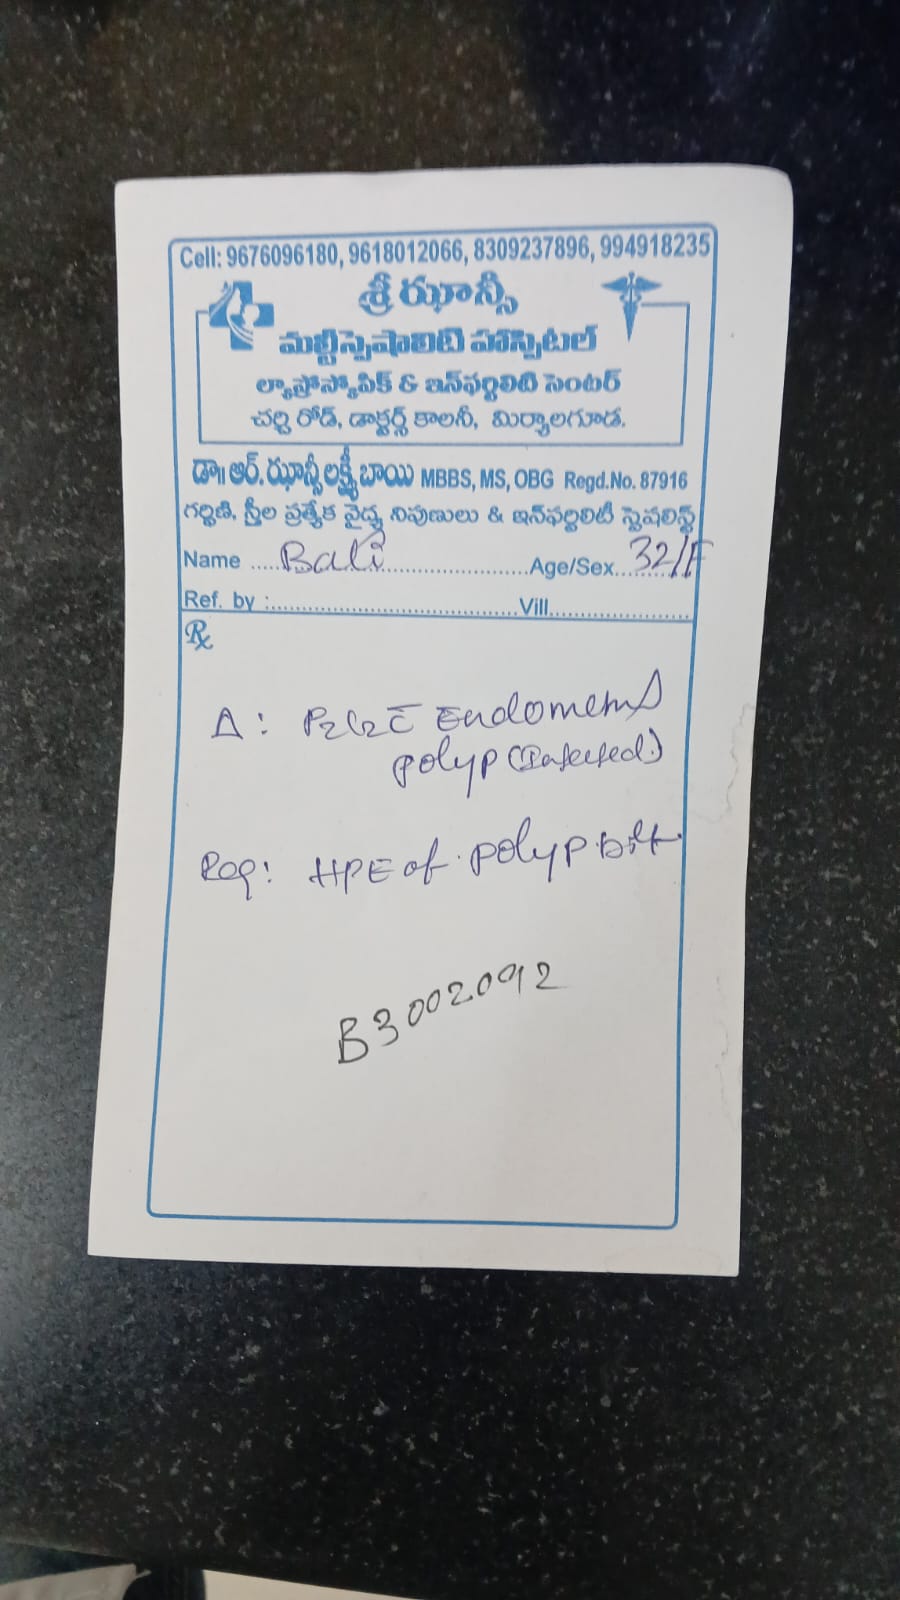 Cell: 9676096180, 9618012066, 8309237896, 994918235
శ్రీ ఝాన్సీ
మల్టీస్పెషాలిటి హాస్పిటల్
ల్యాప్రోస్కోపిక్ & ఇన్‌ఫర్టిలిటి సెంటర్
చర్చి రోడ్, డాక్టర్స్ కాలనీ, మిర్యాలగూడ.
డా॥ ఆర్. ఝాన్సీ లక్ష్మీ బాయి MBBS, MS, OBG Regd.No. 87916
గర్భిణి, స్త్రీల ప్రత్యేక వైద్య నిపుణులు & ఇన్‌ఫర్టిలిటీ స్పెషలిస్ట్
Name ..... Bali ..... Age/Sex.. 32/F
Ref. by :..... Vill.....
℞
Δ: P2L2 c̄ Endometrial
polyp (Infected)
Req: HPE of polyp
B3002092